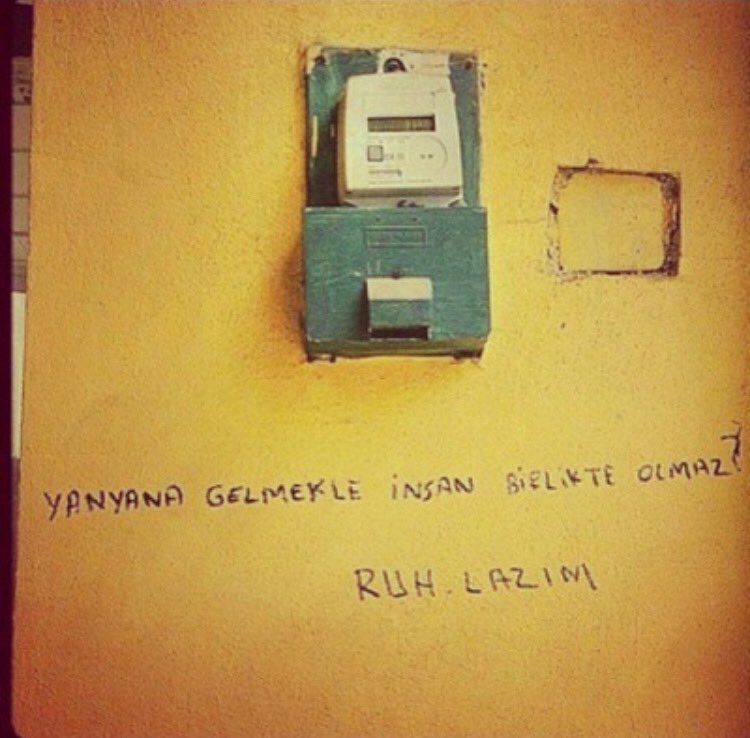 YANYANA GELMEKLE İNSAN BİRLİKTE OLMAZ?
RUH.LAZIM